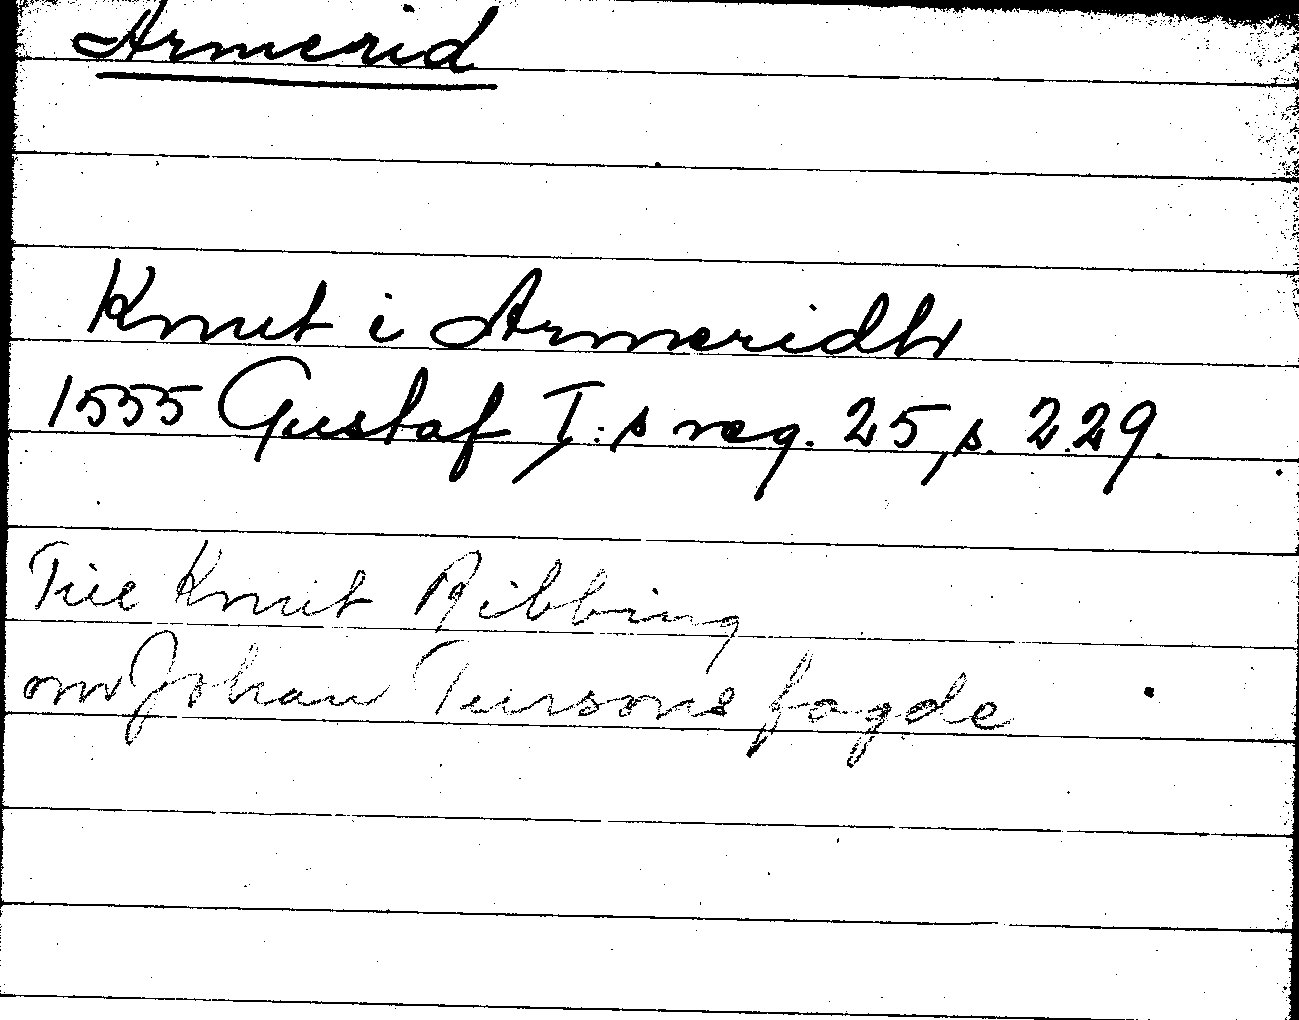 Armerid
Knut i Armeridh
1555 Gustaf I:s reg. 25, s. 229.
Till Knut Ribbing
om Johan Turssons fogde